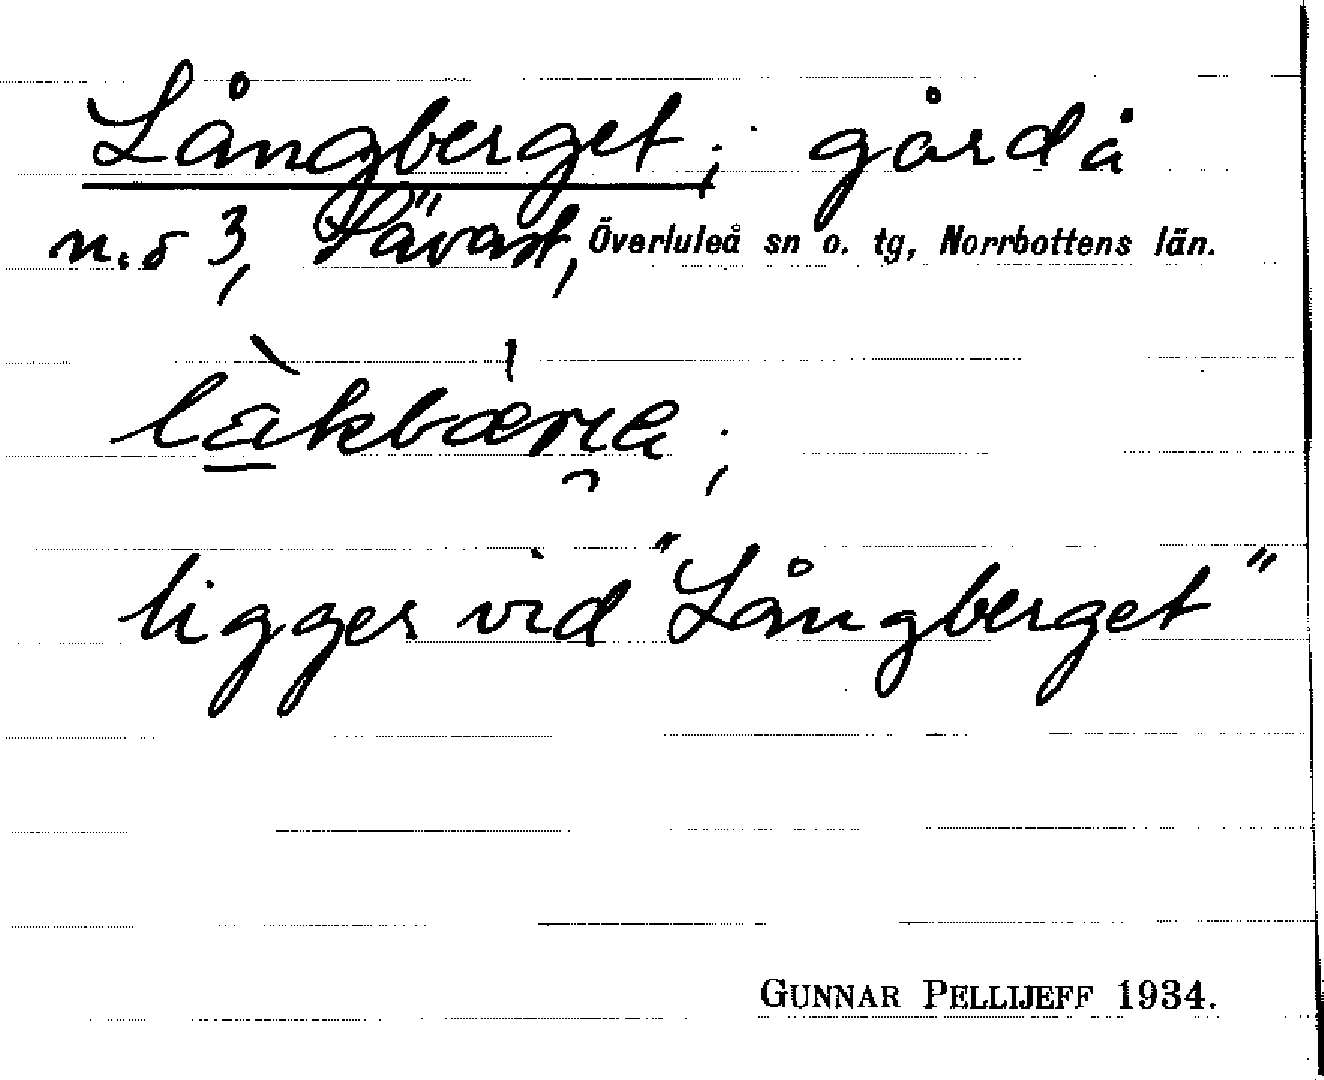 Långberget; gård å
n:o 3, Sävast, Överluleå sn o. tg, Norrbottens län.
ligger vid "Långberget"
GUNNAR PELLIJEFF 1934.